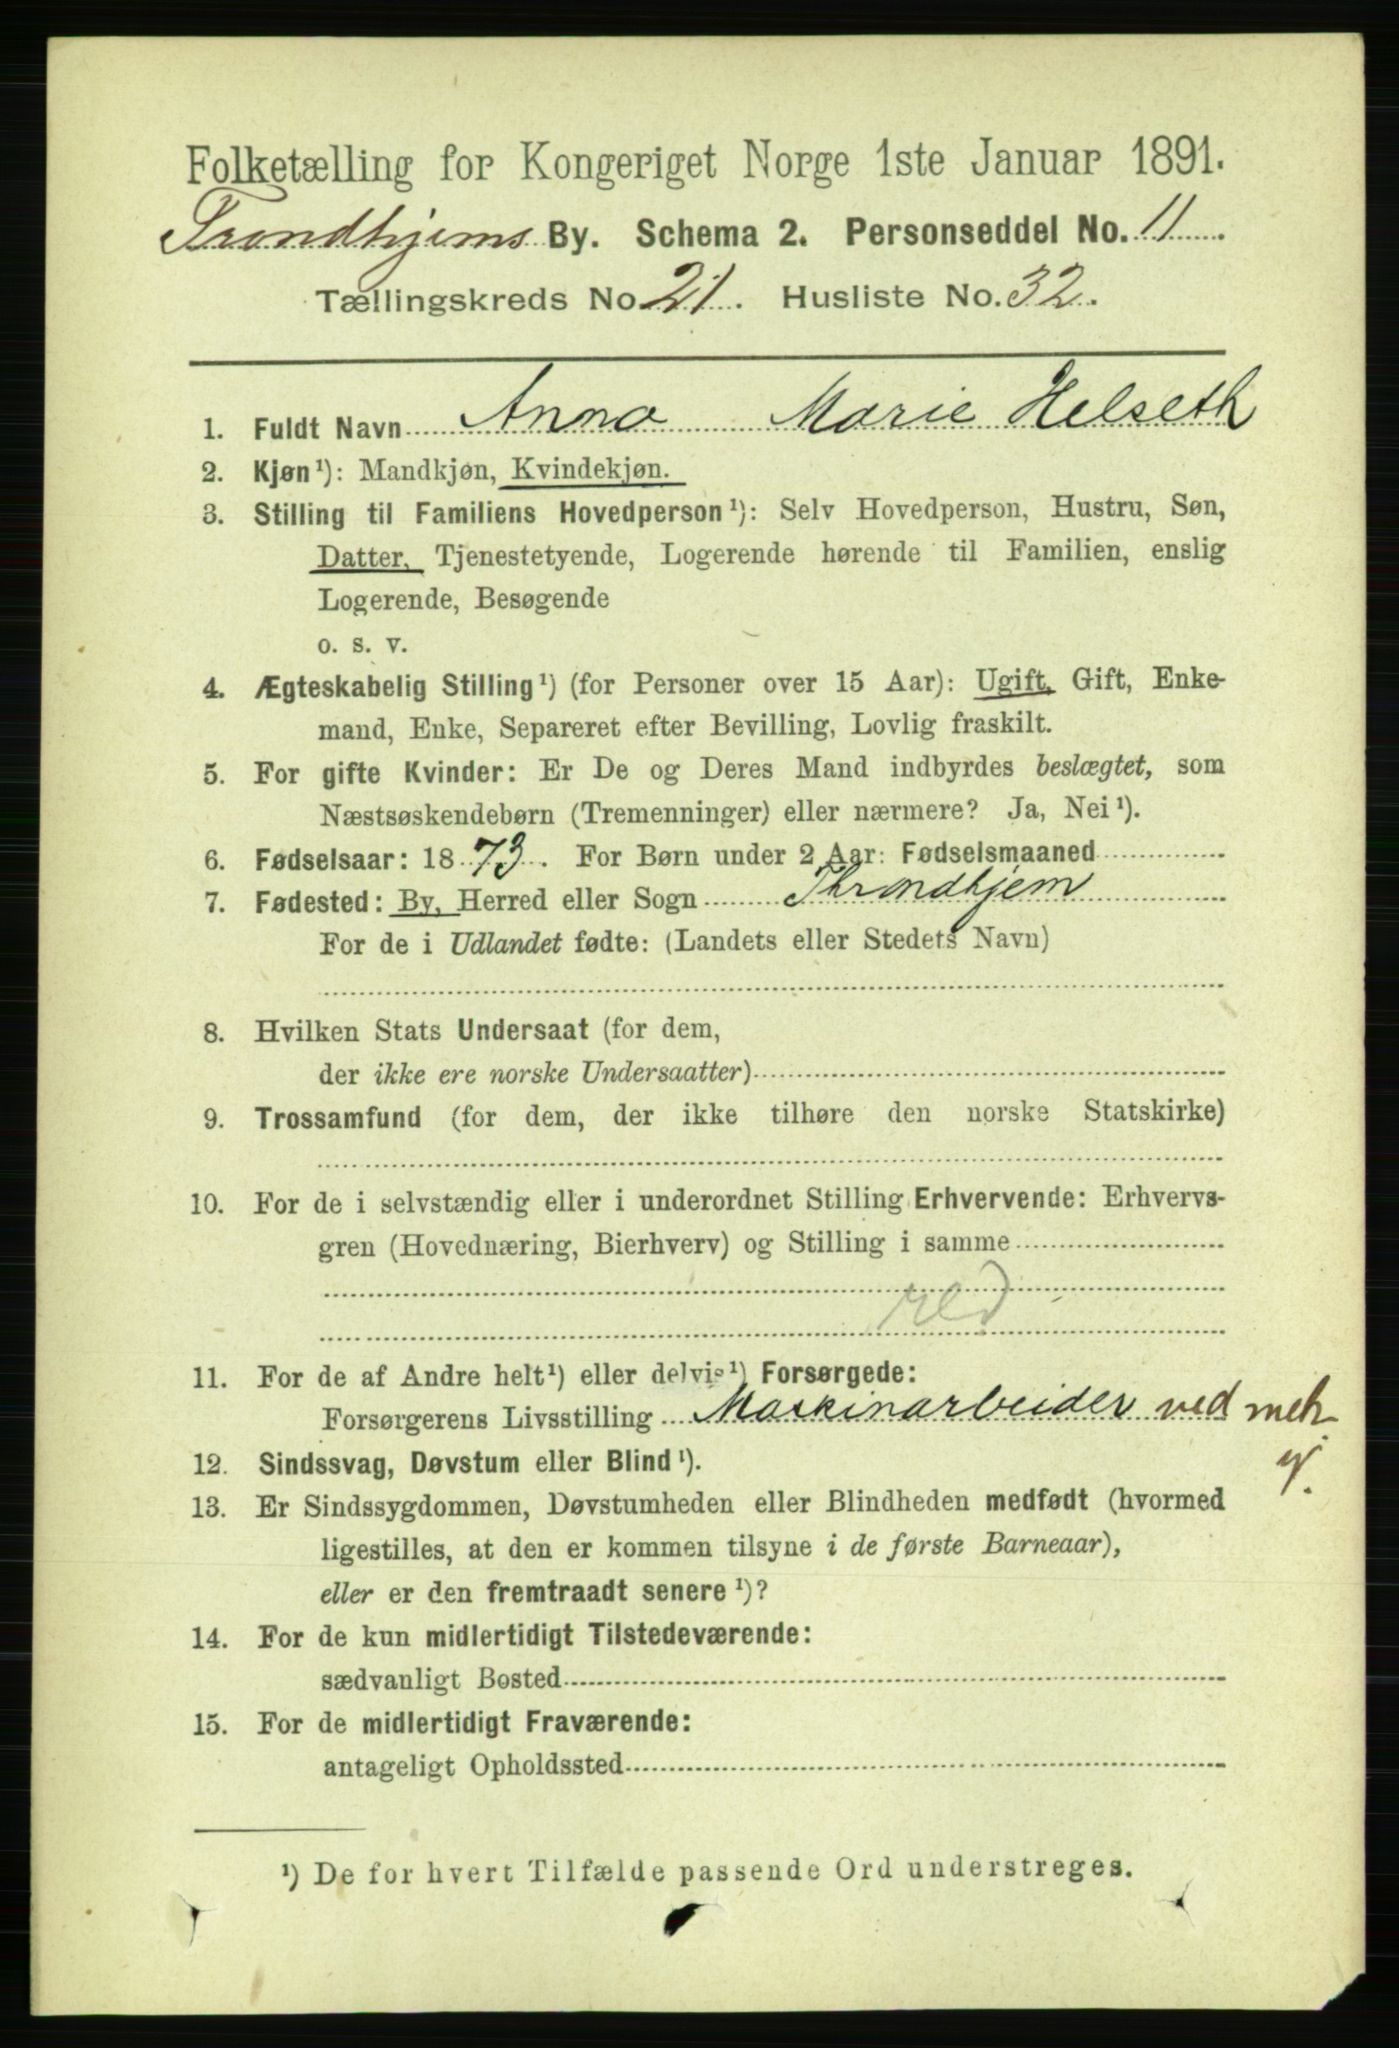 Folketælling for Kongeriget Norge 1ste Januar 1891.
Trondhjems By. Schema 2. Personseddel No. 11
Tællingskreds No. 21. Husliste No. 32.
1. Fuldt Navn Anna Marie Helseth
2. Kjøn¹): Mandkjøn, Kvindekjøn.
3. Stilling til Familiens Hovedperson¹): Selv Hovedperson, Hustru, Søn,
Datter, Tjenestetyende, Logerende hørende til Familien, enslig
Logerende, Besøgende
o. s. v.
4. Ægteskabelig Stilling¹) (for Personer over 15 Aar): Ugift, Gift, Enke-
mand, Enke, Separeret efter Bevilling, Lovlig fraskilt.
5. For gifte Kvinder: Er De og Deres Mand indbyrdes beslægtet, som
Næstsøskendebørn (Tremenninger) eller nærmere? Ja, Nei¹).
6. Fødselsaar: 1873. For Børn under 2 Aar: Fødselsmaaned
7. Fødested: By, Herred eller Sogn Throndhjem
For de i Udlandet fødte: (Landets eller Stedets Navn)
8. Hvilken Stats Undersaat (for dem,
der ikke ere norske Undersaatter)
9. Trossamfund (for dem, der ikke tilhøre den norske Statskirke)
10. For de i selvstændig eller i underordnet Stilling Erhvervende: Erhvervs-
gren (Hovednæring, Bierhverv) og Stilling i samme
11. For de af Andre helt¹) eller delvis¹) Forsørgede:
Forsørgerens Livsstilling Maskinarbeider ved meh.
V.
12. Sindssvag, Døvstum eller Blind¹).
13. Er Sindssygdommen, Døvstumheden eller Blindheden medfødt (hvormed
ligestilles, at den er kommen tilsyne i de første Barneaar),
eller er den fremtraadt senere¹)?
14. For de kun midlertidigt Tilstedeværende:
sædvanligt Bosted
15. For de midlertidigt Fraværende:
antageligt Opholdssted
¹) De for hvert Tilfælde passende Ord understreges.